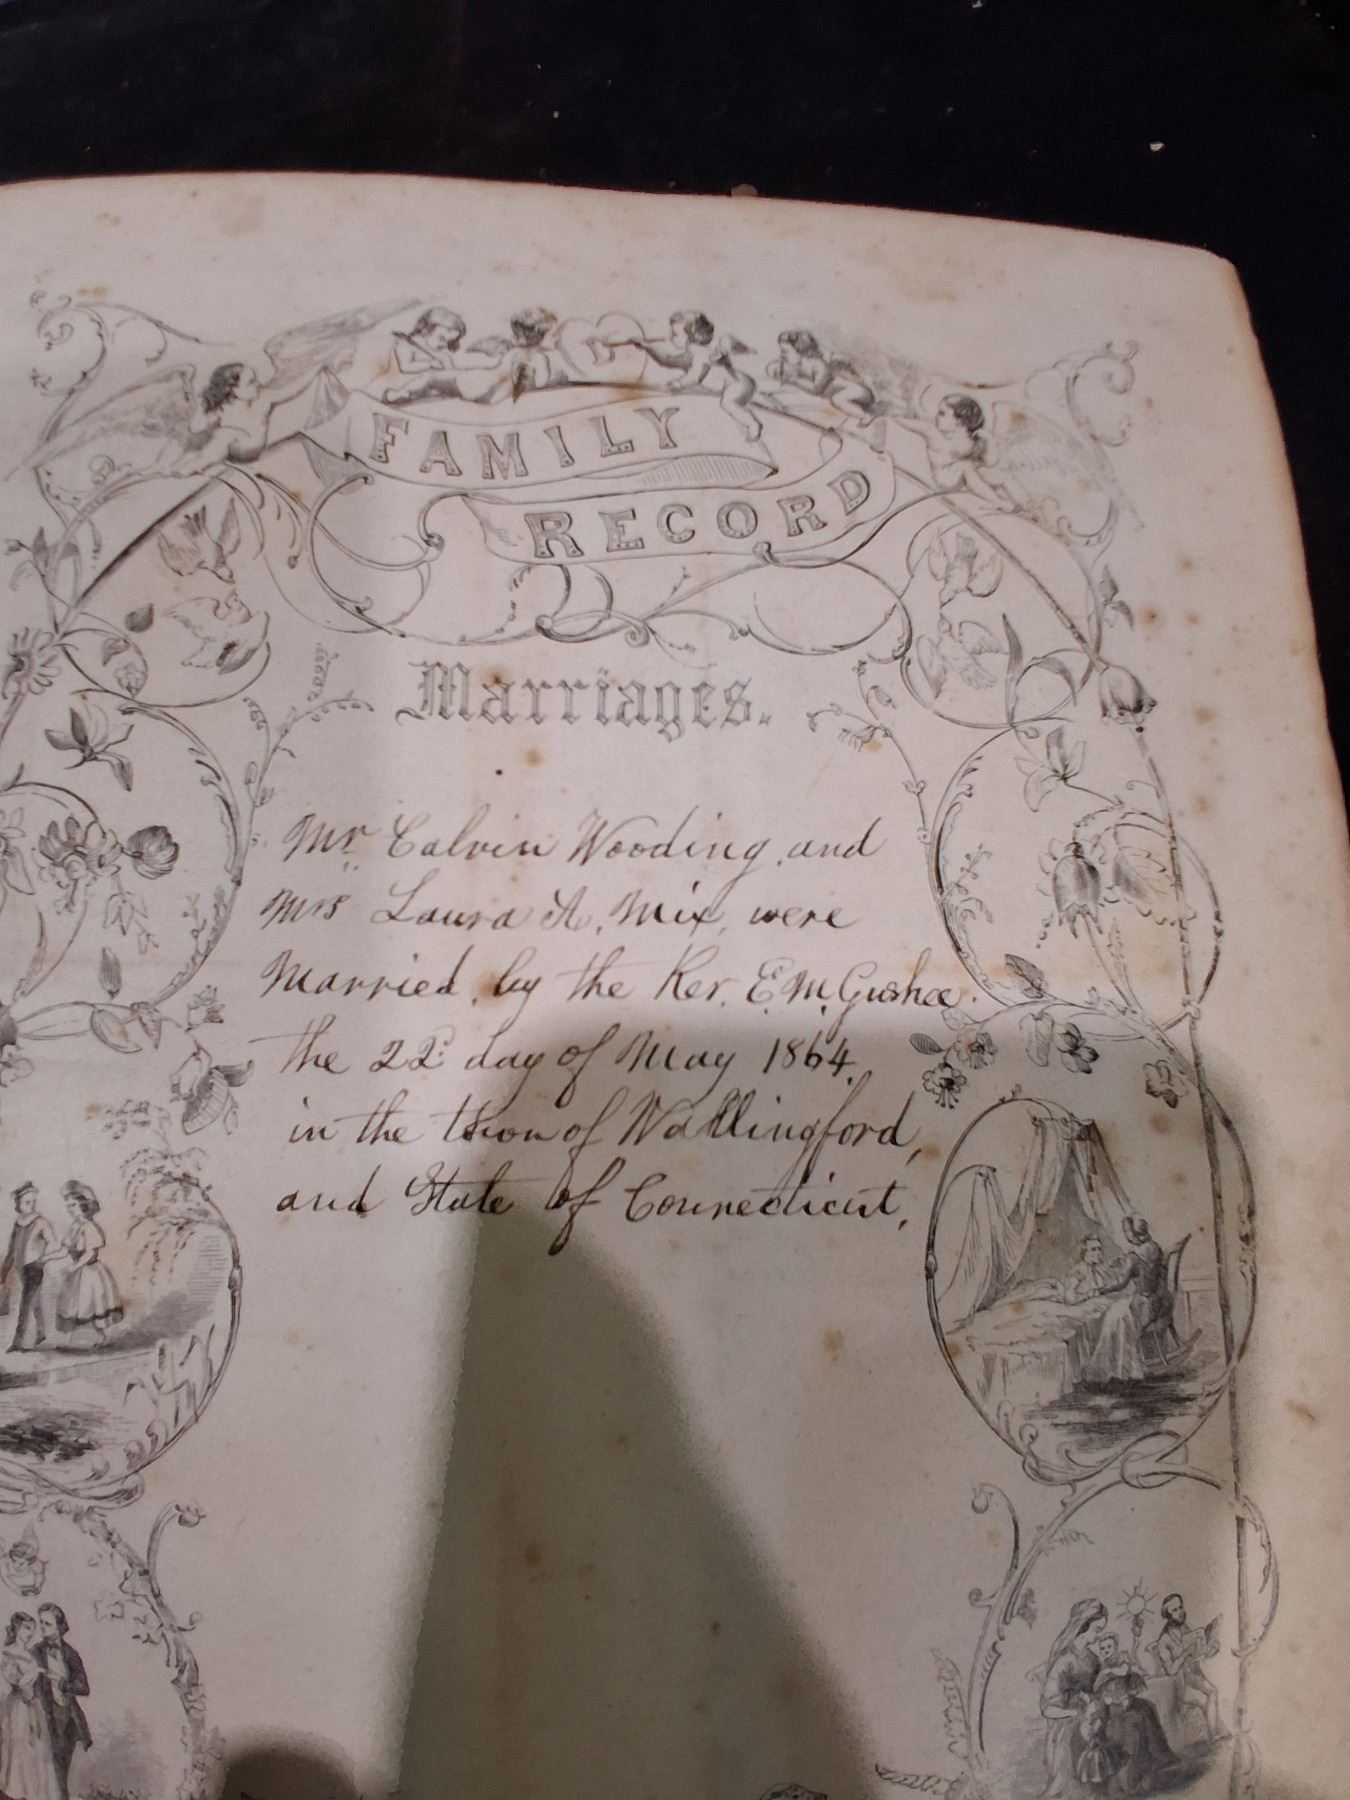 FAMILY
RECORD
Marriages.
Mr Calvin Wooding, and
Mrs Laura A. Mix, were
Married, by the Rev. E. M. Gushee.
the 22d day of May 1864.
in the town of Wallingford,
and State of Connecticut,